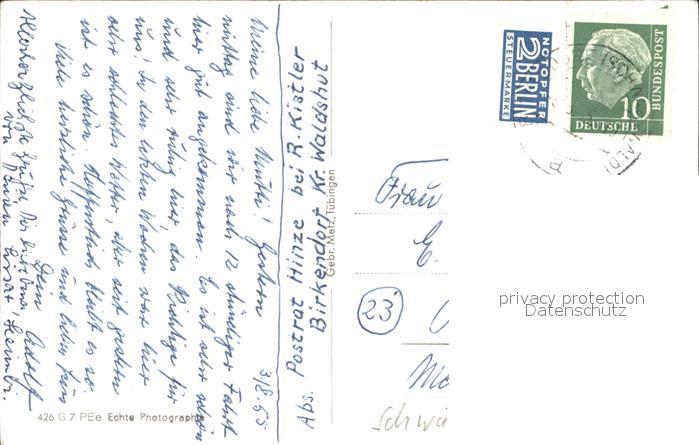 3/8.55
Meine liebe Mutti! Gestern
mittag sind wir nach 12 stündiger Fahrt
hier gut angekommen. Es ist sehr schön
und sehr ruhig hier, das Richtige für
uns! In den letzten Wochen war hier
sehr schlechtes Wetter, aber seit gestern
ist es schön. Hoffentlich bleibt es so.
Viele herzliche Grüsse und
Dein Adolf
von Deinen
Abs. Postrat Hinze bei R. Kistler
Birkendorf Kr. Waldshut
Gebr. Metz, Tübingen
426 G 7 PEe Echte Photographie
NOTOPFER
2 BERLIN
STEUERMARKE
10
DEUTSCHE
BUNDESPOST
Frau
E.
23
privacy protection
Datenschutz